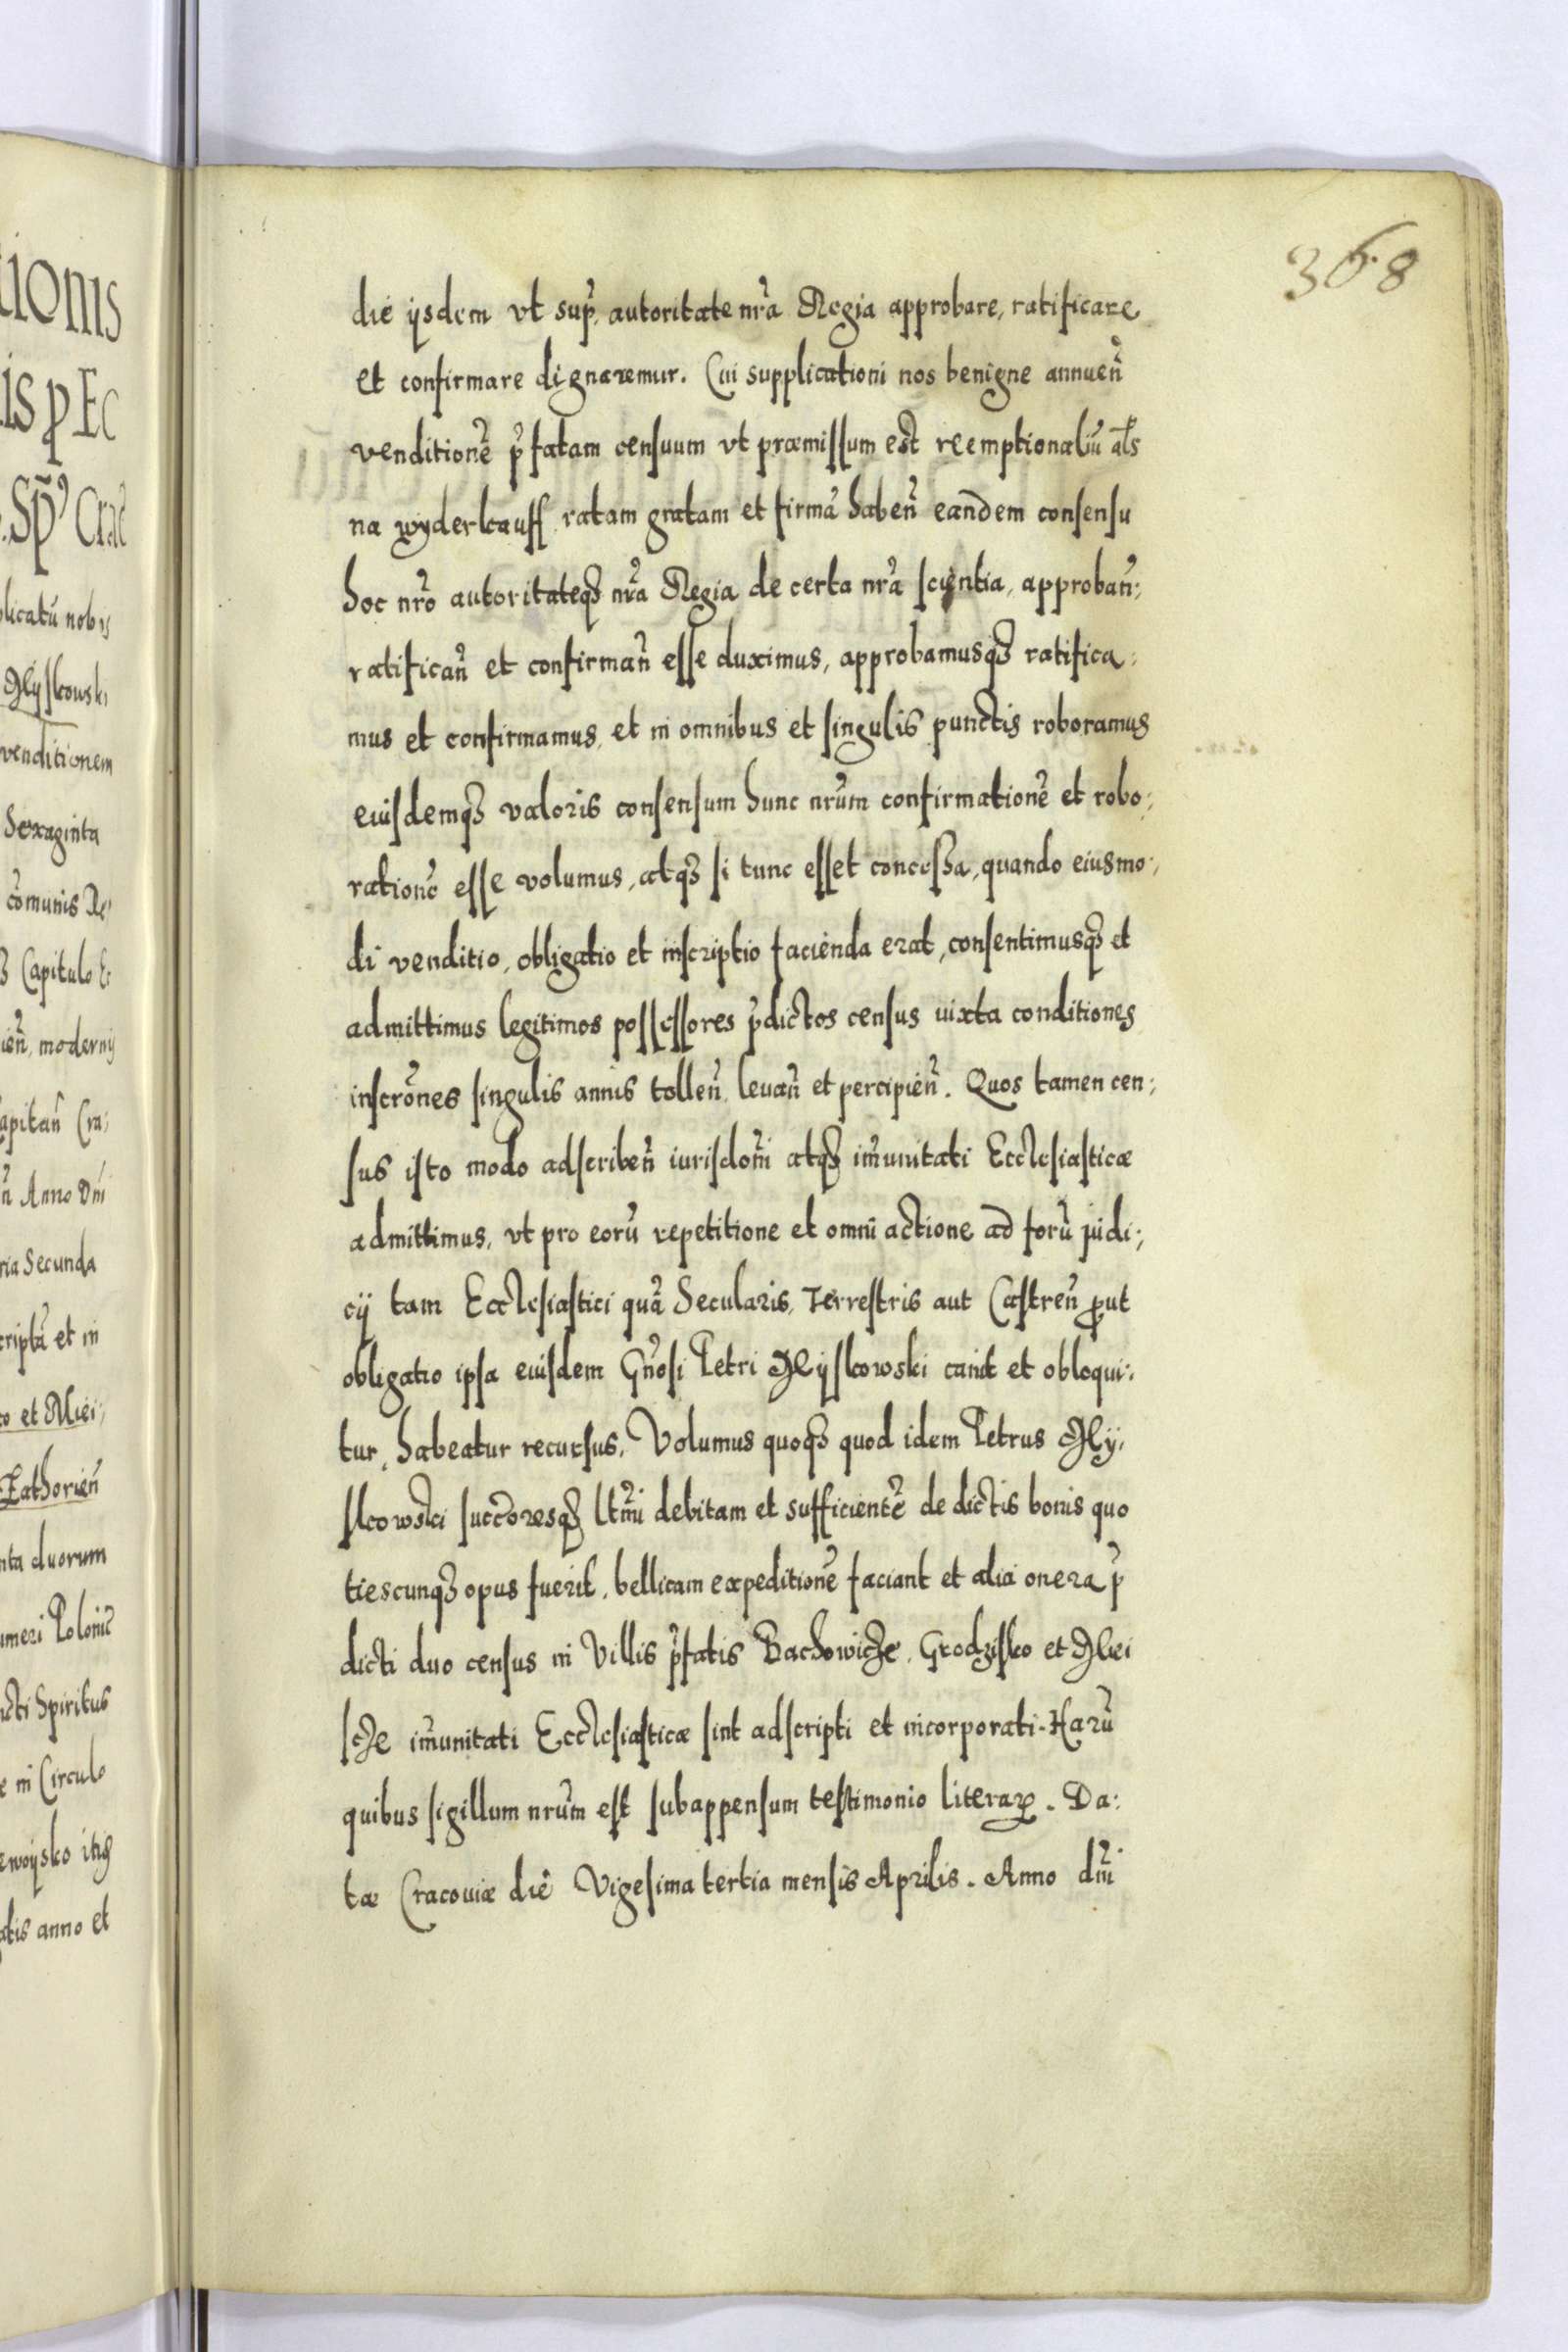 368
die ijsdem vt sup̃, autoritate nrã Regia approbare, ratificare
et confirmare dignaremur. Cui supplicationi nos benigne annueñ
venditionẽ p̃fatam censuum vt præmissum est reemptionaliũ als̃
na wyderkauff ratam gratam et firmã habeñ eandem consensu
hoc nrõ autoritateqꝫ nrã Regia de certa nrã scientia, approbañ:
ratificañ et confirmañ esse duximus, approbamusqꝫ ratifica:
mus et confirmamus, et in omnibus et singulis punctis roboramus
eiusdemqꝫ valoris consensum hunc nrũm confirmationẽ et robo:
rationẽ esse volumus, atqꝫ si tunc esset concessa, quando eiusmo:
di venditio, obligatio et inscriptio facienda erat, consentimusqꝫ et
admittimus legitimos possessores p̃dictos census iuxta conditiones
inscrõnes singulis annis tolleñ, levañ et percipieñ. Quos tamen cen:
sus isto modo adscribeñ iurisdoñi atqꝫ im̃unitati Ecclesiasticæ
admittimus, vt pro eorũ repetitione et omni actione ad forũ judi:
cij tam Ecclesiastici quã Secularis, Terrestris aut Castreñ ꝓut
obligatio ipsa eiusdem Gñosi Petri Myskowski canit et obloqui:
tur, habeatur recursus, Volumus quoqꝫ quod idem Petrus My:
skowski succoresqꝫ ltm̃i debitam et sufficientẽ de dictis bonis quo
tiescunqꝫ opus fuerit, bellicam expeditionẽ faciant et alia onera p̃
dicti duo census in Villis p̃fatis Bachowicze, Grodzisko et Miei
scze im̃unitati Ecclesiasticæ sint adscripti et incorporati. Harũ
quibus sigillum nrũm est subappensum testimonio literaꝝ. Da:
tæ Cracoviæ die Vigesima tertia mensis Aprilis. Anno dm̃i